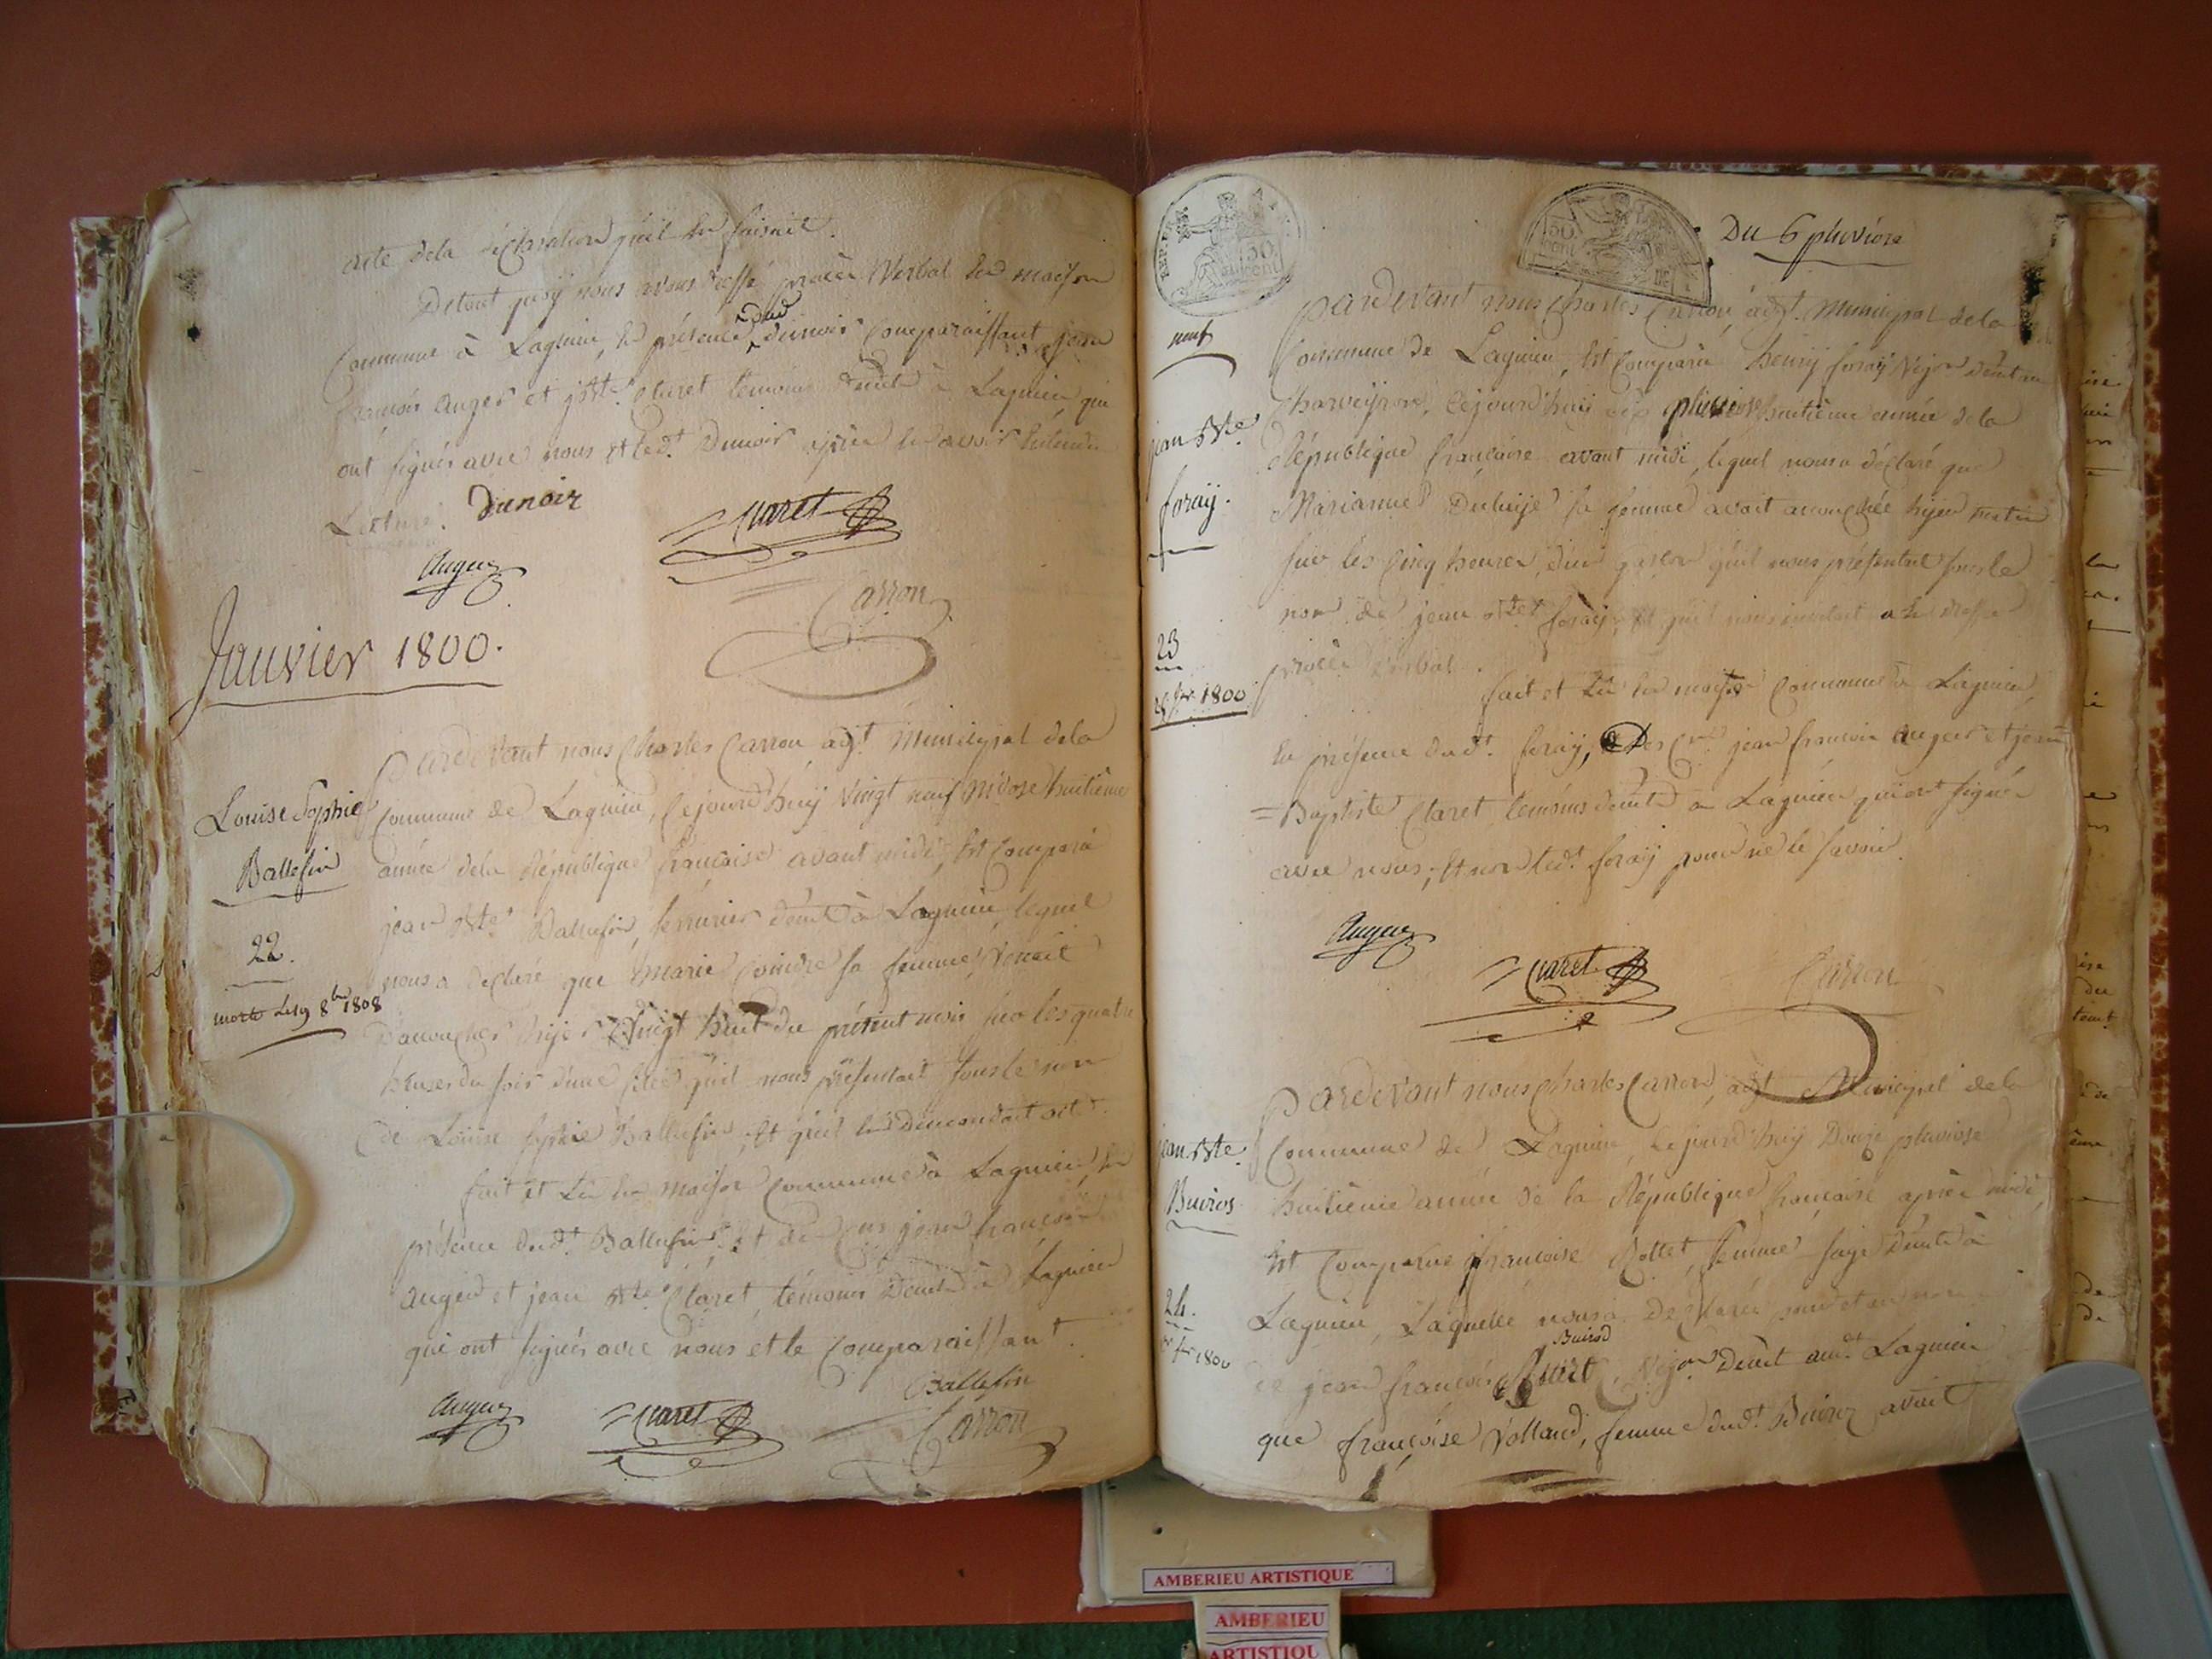 acte dela déclaration qu'il en faisait.
Detout quoÿ nous avons dressé procès Verbal en maison
Commune à Lagnieu, en présence dud dunoir Comparaissant, jean
françois auger et j Bte. Claret témoins demt à Lagnieu qui
ont signés avec nous et led. Dunoir après en avoir entendu
Lecture. Dunoir
Claret
Auger
Carron
Janvier 1800.
Pardevant nous Charles Carron, agt. Municipal dela
Louise Sophie
Commune de Lagnieu, Cejourd'huÿ Vingt neuf Nivose huitième
Ballefin
année dela République française avant midi, Est Comparu
jean Bte. Ballefin, serrurier demt. à Lagnieu, lequel
22.
nous a déclaré que Marie Cointre sa femme, Venait
morte Le 19 8bre 1808
D'accoucher hÿer Vingt huit du présent mois sur les quatre
heures du soir d'une fille qu'il nous présentait sous le nom
de Louise Sophie Ballefin, Et qu'il en Demandait acte.
fait et Lu en maison Commune à Lagnieu, en
présence dudt. Ballefin, Et de jean françois
auger et jean Bte. Claret, témoins Demt. à Lagnieu
qui ont signés avec nous et le Comparaissant.
Ballefin
Auger Claret Carron
Du 6 pluviose
30 cent
neuf
Pardevant nous Charles Carron, agt. Municipal dela
Commune de Lagnieu, Est Comparu henrÿ foraÿ Vigon demt au
Charveÿron, Cejourd'huÿ six pluviose huitième année dela
jean Bte.
République française avant midi, lequel nous a déclaré que
foraÿ.
Marianne sa femme avait accouchée hÿer matin
sur les Cinq heures, d'un garçon qu'il nous présentait sous le
nom de jean Bte. foraÿ, Et qu'il nous invitait a en dresser
23
procès Verbal.
26 jer. 1800
fait et Lu en maison Commune à Lagnieu,
En présence dudt. foraÿ, Des jean françois auger et jean
= Baptiste Claret, témoins demt. à Lagnieu qui ont signés
avec nous, Et non ledt. foraÿ pour ne le savoir.
Auger
Claret
Carron
Pardevant nous Charles Carron, agt. Municipal dela
jean Bte.
Commune de Lagnieu, Cejourd'huÿ Douze pluviose
Buiros
huitième année de la République française après midi,
Est Comparue françoise Rollet, femme sage demt. à
24.
Lagnieu, Laquelle nous a Déclaré pour et au nom
1er fer 1800
Buirod
de jean françois Vigon Demt. audt. Lagnieu
que françoise Volland, femme dudt. Buiroz avait
AMBERIEU ARTISTIQUE
AMBERIEU
ARTISTIQU